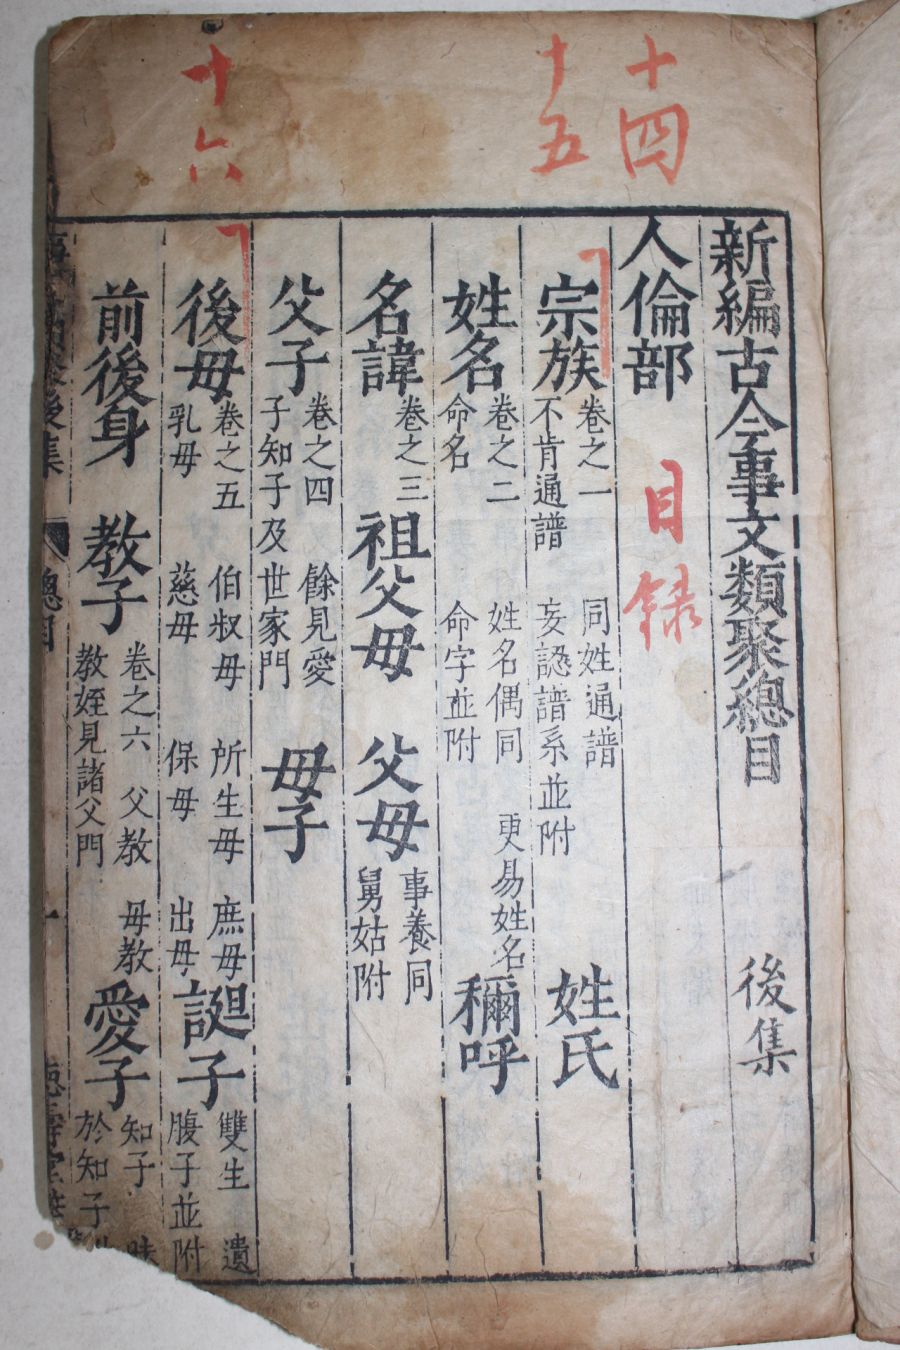 十四
十五
十六
新編古今事文類聚總目
後集
人倫部
目录
宗族 卷之一 不肯通譜 同姓通譜 妄認譜系並附 姓氏
姓名 卷之二 命名 姓名偶同 命字並附 更易姓名 稱呼
名諱 卷之三 祖父母 父母 事養同 舅姑附
父子 卷之四 子知子及 餘見愛 世家門 母子
後母 卷之五 乳母 伯叔母 慈母 所生母 保母 庶母 出母 誕子 雙生 遺腹子並附
前後身 教子 卷之六 父教 母教 教姪見諸父門 愛子 知子 於知子
後集
總目
一